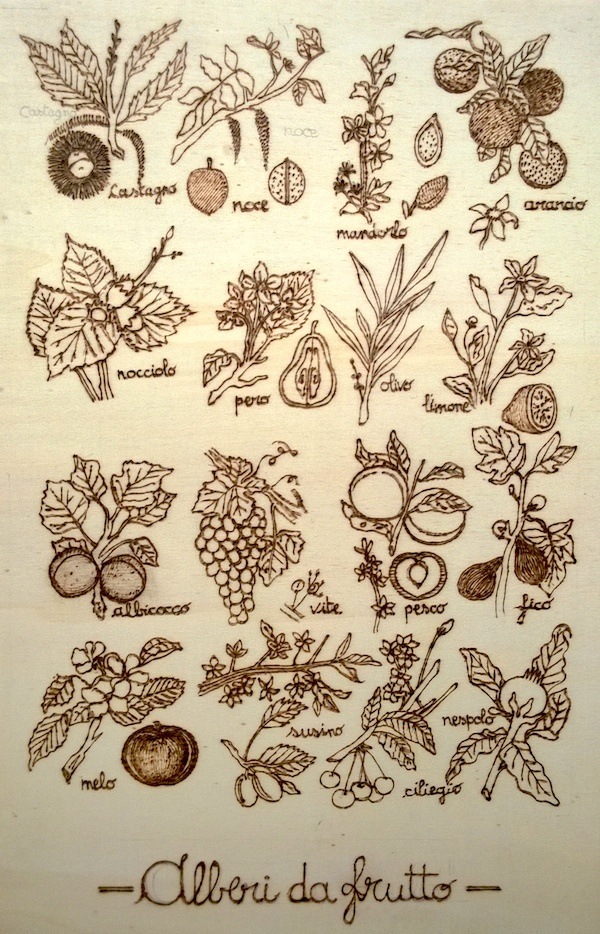 Castagno
noce
Castagno
noce
mandorlo
arancio
nocciolo
pero
olivo
limone
albicocco
vite
pesco
fico
melo
susino
ciliegio
nespolo
Alberi da frutto